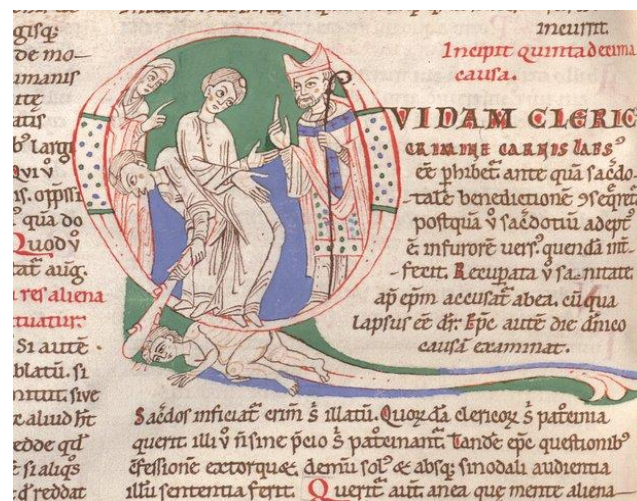 gisq;
de mo-
imanis
itte
atis
b⁹ largi
Qvi v̄
is. opp̄ssi
⁹ qua do
Quod v̄
tat̄ aug.
a res aliena
tuatur:
Si autē
blatū. si
mitit. sive
e aliud h̄t
edde qd̄
ē si aliq̄s
d̄ reddat
incurrit.
Incipit quintadecima
causa.
QVIDAM CLERIC
CRIMINE CARNIS LAPS⁹
ēē phibet̄ ante quā sac̄do-
tatē benedictionē ꝯseq̄ret̄
postquā v̄ sac̄dotiū adept⁹
ē. in furorē uers⁹ quendā int̄-
fecit. Recupata v̄ sanitate
ap̄ ep̄m accusat̄ ab ea. cū qua
lapsus eē dr̄. Ep̄c autē die dn̄ico
causā examinat.
Sac̄dos inficiat̄ crim̄ s̄ illatū. Quorz dā clericorz s̄ patrcinia
querit. illi v̄ n̄ sine p̄cio s̄ patrcinant̄. Tandē ep̄c questionib⁹
ꝯfessionē extorquet. demū sol⁹ & absq; sinodali audientia
illū sententia ferit. Querit̄ aut̄. an ea que mente aliena